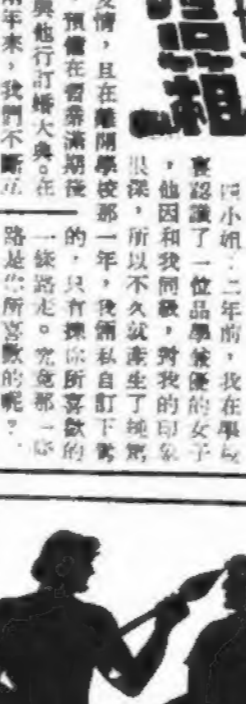 四小姐:二年前,我在學校
裏認識了一位品學兼優的女子
,他因和我同級,對我的印象
很深,所以不久就產生了純潔
情,且在離開學校那一年,我倆私自訂下誓
,預備在習業滿期後
與他行訂婚大典。在
年來,我們不斷
的,只有揀你所喜歡的
一條路走。究竟那一條
路是你所喜歡的呢?